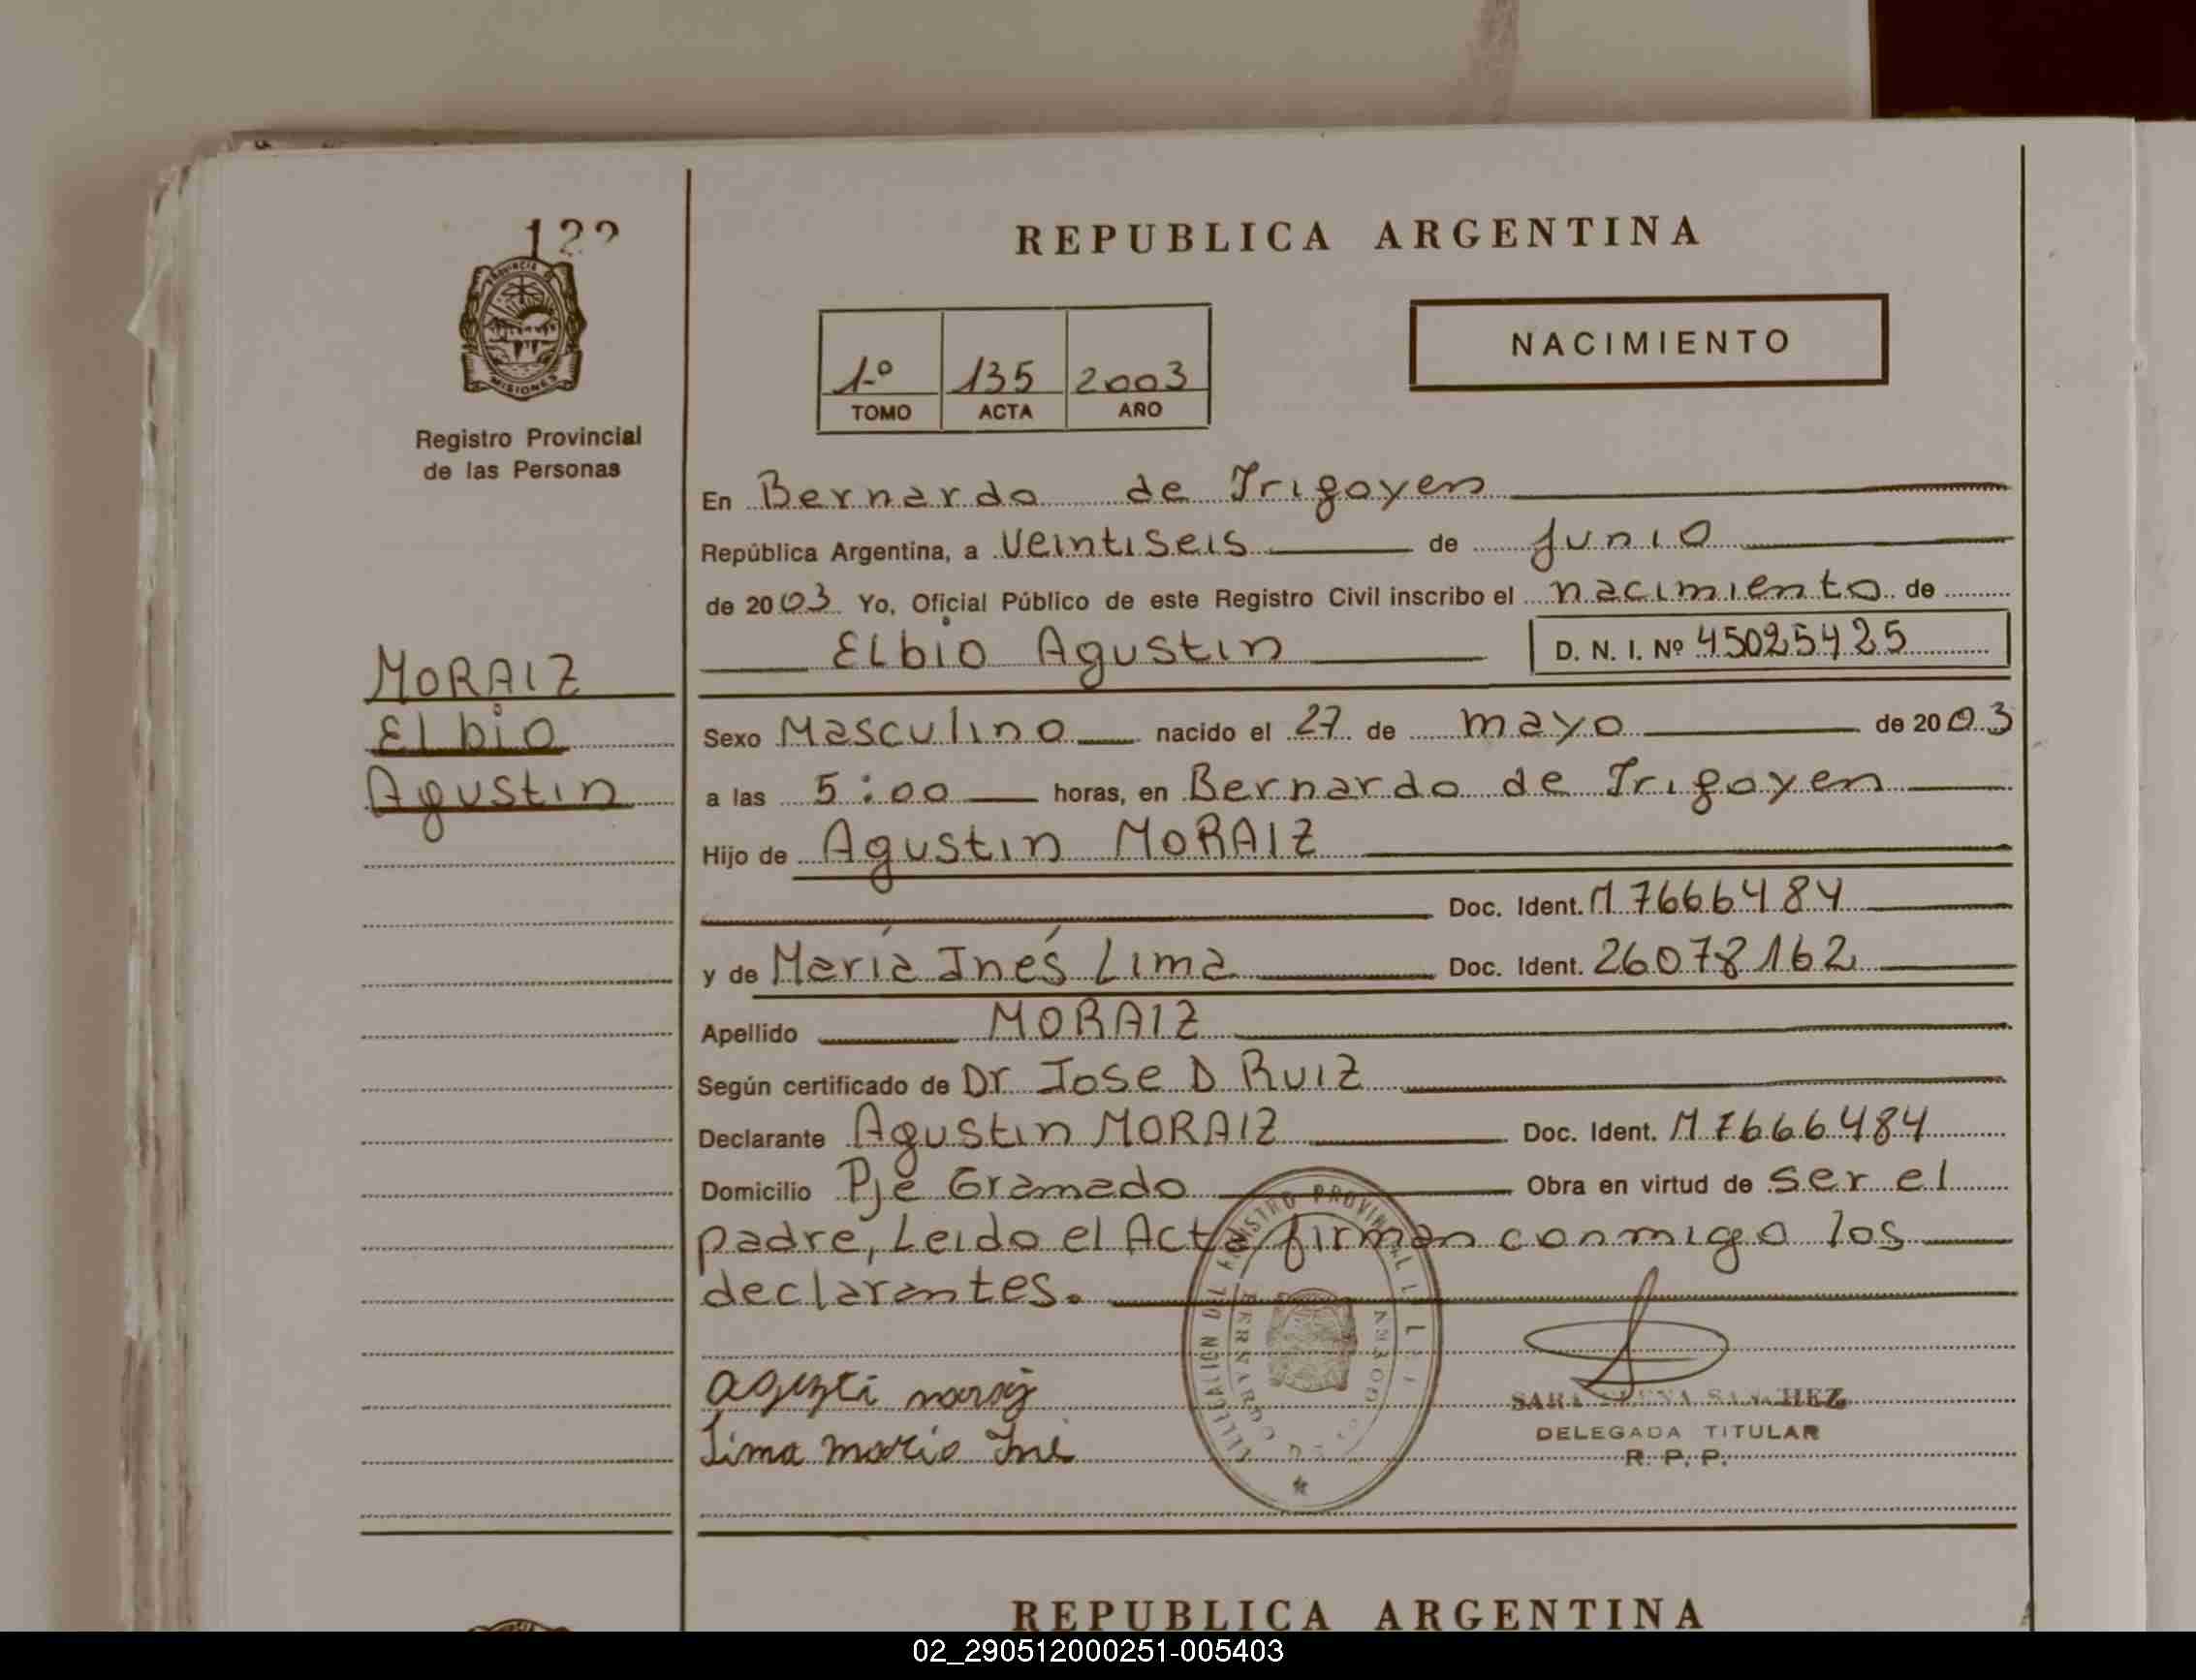 122
PROVINCIA DE
MISIONES
Registro Provincial
de las Personas
MORAIZ
Elbio
Agustin
REPUBLICA ARGENTINA
1º 135 2003
TOMO ACTA AÑO
NACIMIENTO
En Bernardo de Irigoyen
República Argentina, a veintiseis de Junio
de 2003 Yo, Oficial Público de este Registro Civil inscribo el nacimiento de
Elbio Agustin D. N. I. Nº 45025425
Sexo Masculino nacido el 27 de mayo de 2003
a las 5:00 horas, en Bernardo de Irigoyen
Hijo de Agustin MORAIZ
Doc. Ident. M 7666484
y de María Inés Lima Doc. Ident. 26078162
Apellido MORAIZ
Según certificado de Dr Jose D Ruiz
Declarante Agustin MORAIZ Doc. Ident. M 7666484
Domicilio Pje Gramado Obra en virtud de ser el
padre, Leido el Acta firman conmigo los
declarantes.
Lima
SANCHEZ
DELEGADA TITULAR
R. P. P.
REPUBLICA ARGENTINA
02_290512000251-005403